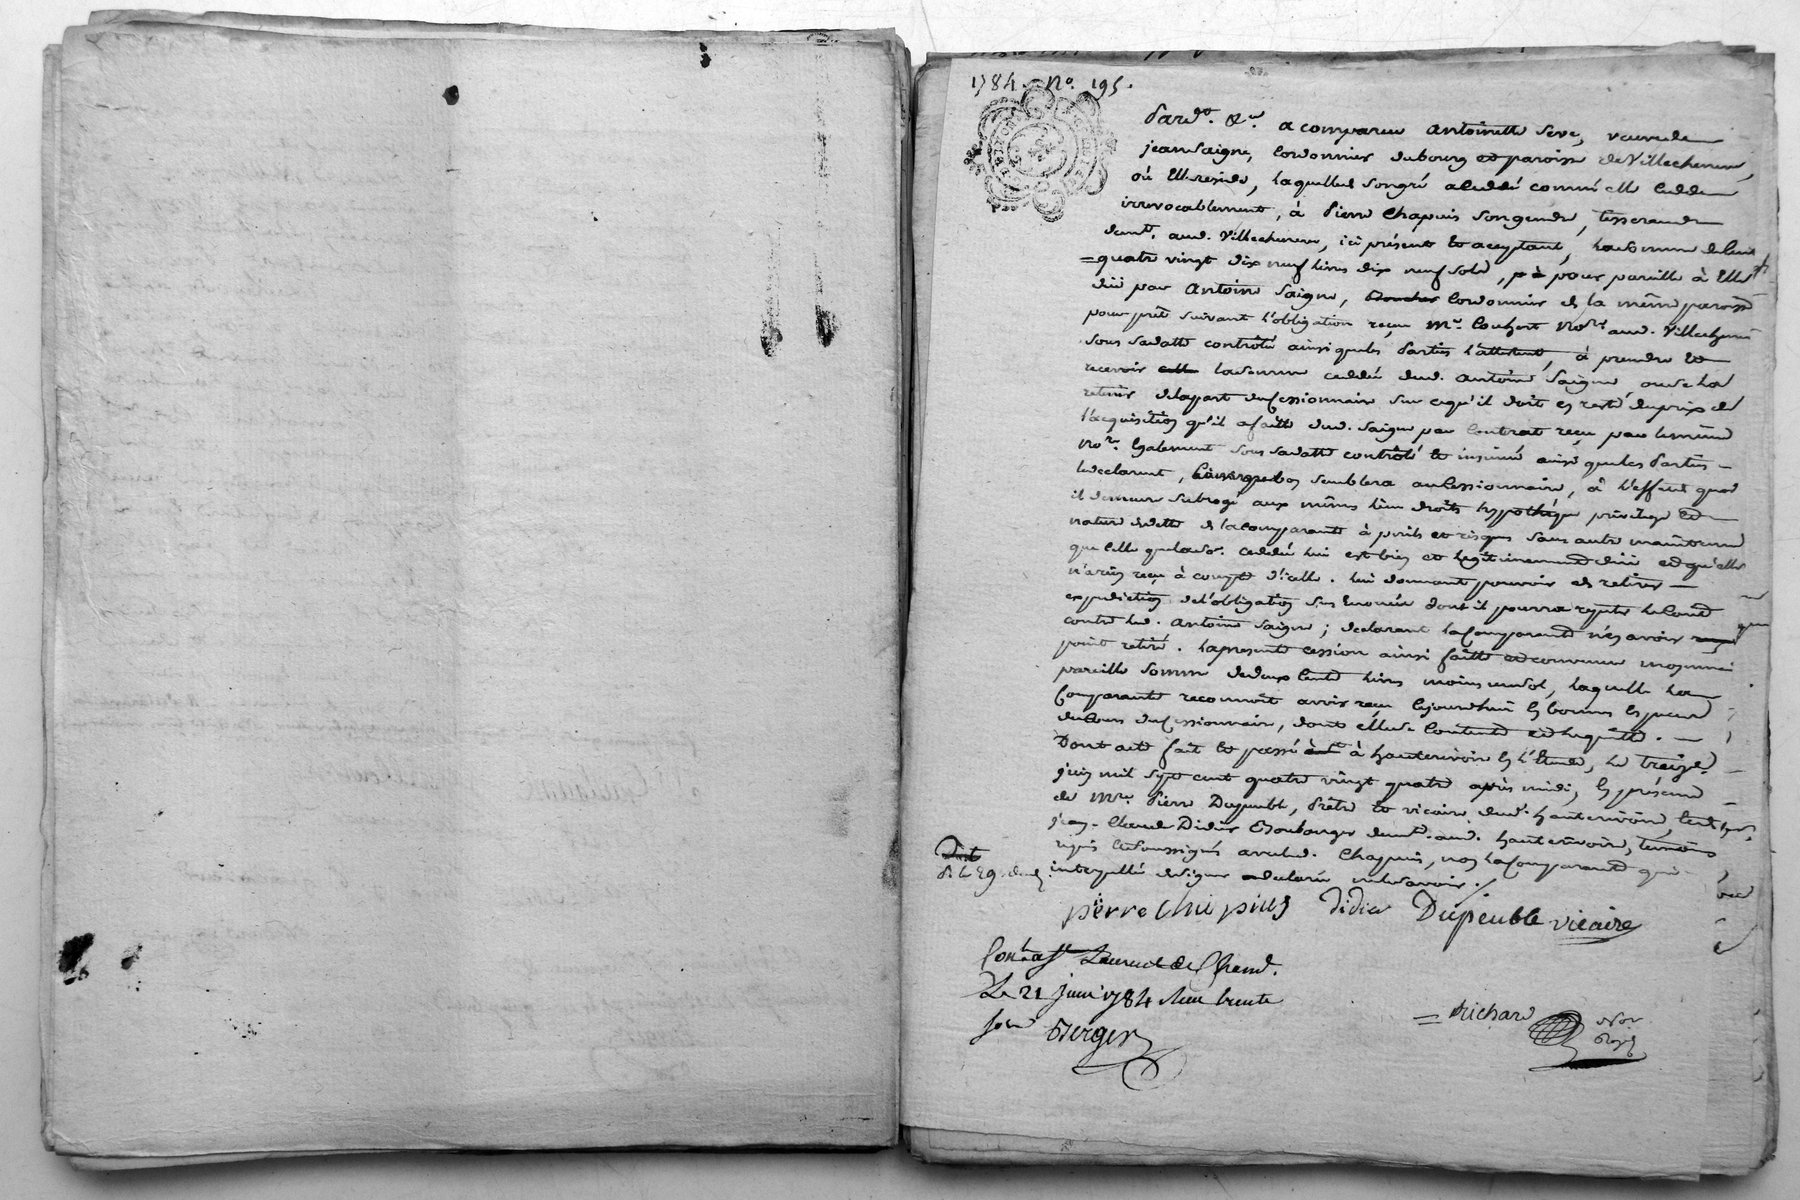 1784. No. 195.
Pard.t &.a a comparu Antoinette Seve, veuve de
jean Saigne, Cordonnier du bourg et paroisse de Villechenève,
où Elle réside, laquelle de son gré a ceddé comme elle cedde
irrevocablement, à Pierre Chapuis son gendre, tisserand
dem.t aud. Villechenève, ici présent et acceptant, la somme de Cent
quatre vingt dix neuf livres dix neuf sols, pour pareille à Elle
düe par Antoine Saigne, Cordonnier de la même paroisse
pour prêt suivant l'obligation reçue M.e Not.re aud. Villechenève
sous sa datte contrôlé ainsi que les Parties l'attestent, à prendre et
recevoir la somme ceddée dud. Antoine Saigne, ou se la
retenir de la part du Cessionnaire sur ce qu'il doit en reste du prix de
l'acquisition qu'il a faitte dud. Saigne par Contrat reçu par le même
No.re Egalement sous sa datte contrôlé et insinué ainsi que les Parties
le declarent, semblera au Cessionnaire, à l'effet quoi
il demeure subrogé aux mêmes lieu droits hypothéque privilege Et
nature de dette de la Comparante à perils et risques sans autre maintenue
que Celle que la so. ceddée lui est bien et légitimement düe et qu'elle
n'a rien reçu à compte d'icelle. lui donnant pouvoir de retirer
expedition de l'obligation sus Enoncée dont il pourra repeter le Cout
contre led. Antoine Saigne; declarant la Comparante n'en avoir
point retiré. la presente cession ainsi faitte et convenue moyennant
pareille somme de deux Cents livres moins un sol, laquelle la
Comparante reconnoit avoir reçu cejourdhui En bonnes Especes
de Cours du Cessionnaire, dont elle se Contente et le quitte.
Dont acte fait et passé à hauterivoire En l'Etude, le treize
juin mil sept cent quatre vingt quatre après midi, En présence
de M.re Pierre Dupeuble, Prêtre et vicaire dud. hauterivoire, Et de s.r
jean-Claude Didier Boulanger dem.t aud. hauterivoire, temoins
requis Et soussignés avec led. Chapuis, non la Comparante qui
interpellée de signer a declaré ne le savoir./.
pierre chapius Didier Dupeuble vicaire
Con.lé a
Le 21 juin 1784 Reçu trente
sols Berger
Richard Not.
Royal